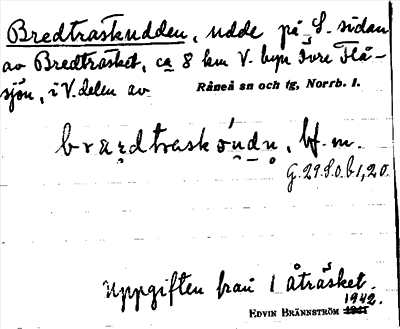 Bredträskudden, udde på S. sidan
av Bredträsket, ca 8 km V. byn Yvre Flå-
sjön, i V. delen av Råneå sn och tg, Norrb. l.
bf. m.
G. 29. S. o. b 1, 20.
Uppgiften från 1 Åträsket.
1942.
EDVIN BRÄNNSTRÖM